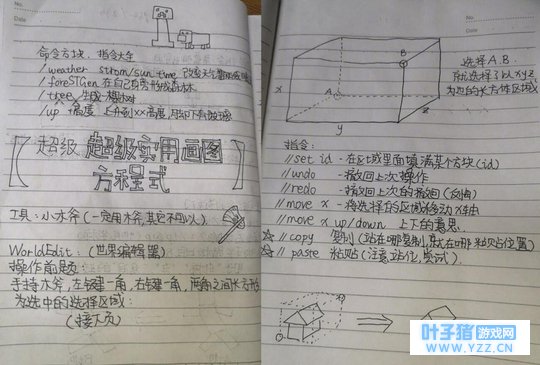 No.
Date
命令方块、指令大全
/weather strom/sun time 改变天气
/foreSTGen 在自己身旁形成森林
/tree 生成一棵树
/up 高度 上升到xx高度，
【超级 超级实用画图
方程式】
工具：小木斧（一定用木斧，其它不可以）
WorldEdit：（世界编辑器）
操作前题：
手持木斧，左键一角，右键一角，两角之间长方形
为选中的选择区域：
（接下页）
No.
Date
B
A
x
y
z
选择A、B
就选择了以xyz
为边的长方体区域
指令：
//set id - 在区域里面填满某个方块(id)
//undo - 撤回上次操作
//redo - 撤回上次的撤回（反悔）
//move x - 将选择的区域移动x格
//move x up/down 上下的意思
☆//copy 复制（站在哪复制，就在哪粘贴位置）
☆//paste 粘贴（注意站位，尝试）
叶子猪游戏网
www.YZZ.cn